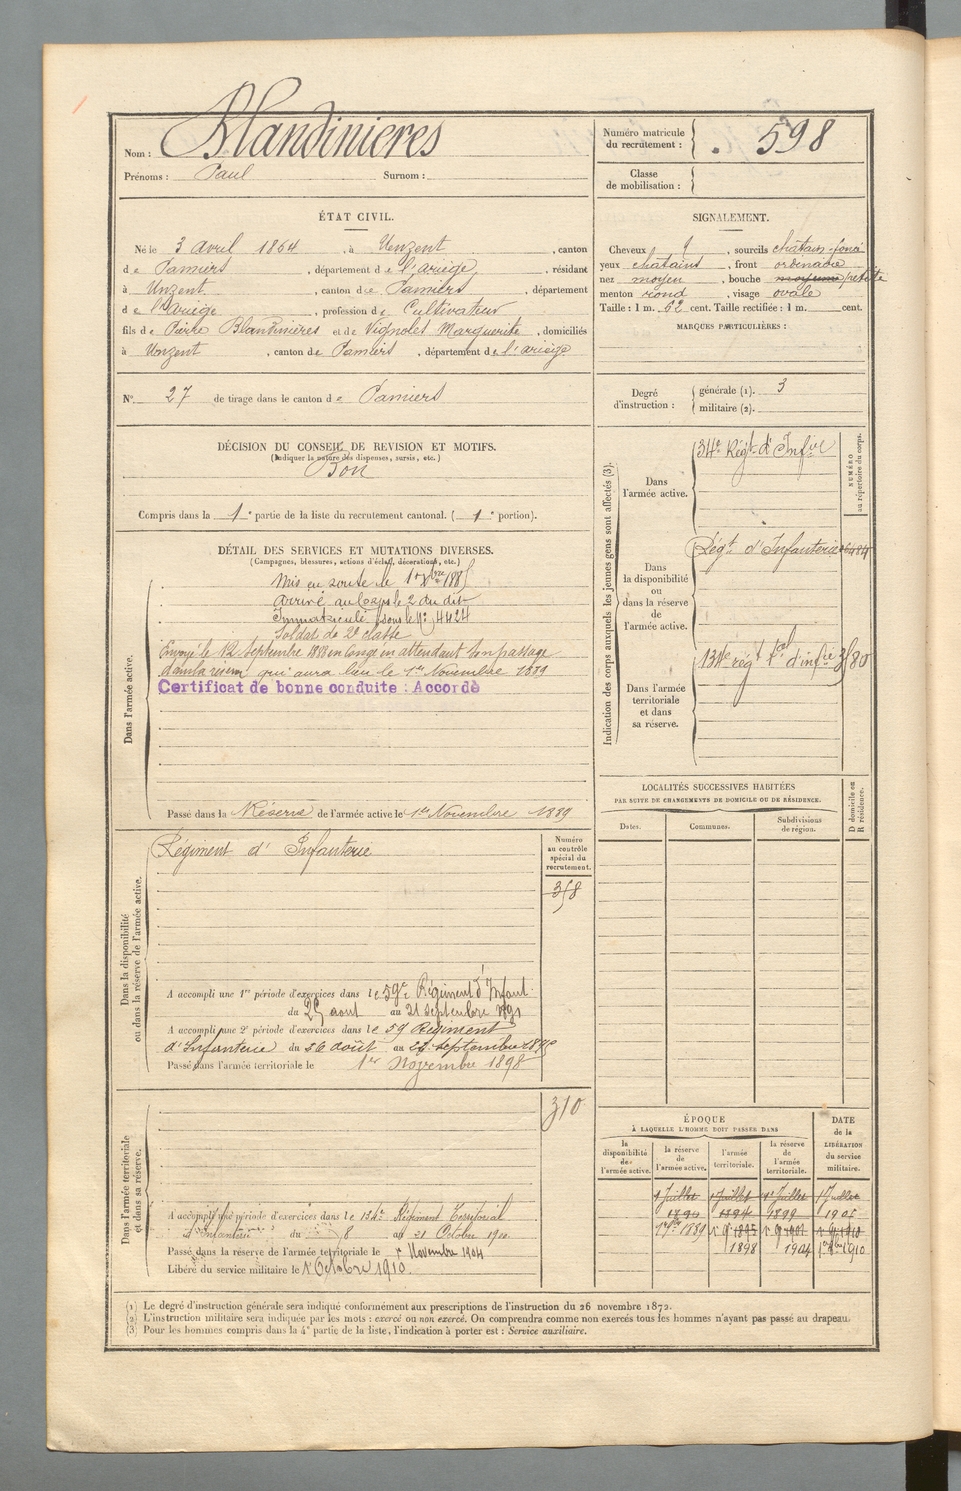 Nom : Blandinieres
Prénoms : Paul Surnom :
Numéro matricule du recrutement : 598
Classe de mobilisation :
ÉTAT CIVIL.
Né le 3 avril 1864, à Unzent, canton
de Pamiers, département de l'ariège, résidant
à Unzent, canton de Pamiers, département
de l'ariège, profession de Cultivateur
fils de Pierre Blandinières et de Vignoles Marguerite, domiciliés
à Unzent, canton de Pamiers, département de l'ariège
SIGNALEMENT.
Cheveux , sourcils chatain-foncé
yeux chatains, front ordinaire
nez moyen, bouche petite
menton rond, visage ovale
Taille : 1 m. 62 cent. Taille rectifiée : 1 m. cent.
MARQUES PARTICULIÈRES :
N° 27 de tirage dans le canton de Pamiers
Degré d'instruction : générale (1). 3
militaire (2).
DÉCISION DU CONSEIL DE REVISION ET MOTIFS.
(Indiquer la nature des dispenses, sursis, etc.)
Bon
Compris dans la 1e partie de la liste du recrutement cantonal. (1e portion).
DÉTAIL DES SERVICES ET MUTATIONS DIVERSES.
(Campagnes, blessures, actions d'éclat, décorations, etc.)
Dans l'armée active.
Mis en route le 1er Xbre 1885
Arrivé au Corps le 2 du dit
Immatriculé sous le N° 4424
Soldat de 2e classe
Envoyé le 12 Septembre 1888 en Congé en attendant son passage
dans la réserve qui aura lieu le 1er Novembre 1889
Certificat de bonne conduite : Accordé
Passé dans la Réserve de l'armée active le 1er Novembre 1889
Indication des corps auxquels les jeunes gens sont affectés (3).
NUMÉRO au répertoire du corps.
Dans l'armée active.
34e Régt d'Infie
Dans la disponibilité ou dans la réserve de l'armée active.
Régt d'Infanterie
Dans l'armée territoriale et dans sa réserve.
134e régt tal d'infie 3580
LOCALITÉS SUCCESSIVES HABITÉES
PAR SUITE DE CHANGEMENTS DE DOMICILE OU DE RÉSIDENCE.
Dates. Communes. Subdivisions de région. D domicile ou R résidence.
Dans la disponibilité ou dans la réserve de l'armée active.
Régiment d'Infanterie
Numéro au contrôle spécial du recrutement.
358
A accompli une 1re période d'exercices dans le 59e Régiment d'Infant.
du 25 aout au 21 septembre 1891
A accompli une 2e période d'exercices dans le 59 Régiment
d'Infanterie du 26 août au septembre
Passé dans l'armée territoriale le 1er Novembre 1898
Dans l'armée territoriale et dans sa réserve.
310
A accompli une période d'exercices dans le 134e Régiment Territorial
d'Infanterie du 8 au 21 Octobre 1900
Passé dans la réserve de l'armée territoriale le 1r Novembre 1904
Libéré du service militaire le 1r Octobre 1910.
ÉPOQUE
À LAQUELLE L'HOMME DOIT PASSER DANS
DATE de la LIBÉRATION du service militaire.
la disponibilité de l'armée active. la réserve de l'armée active. l'armée territoriale. la réserve de l'armée territoriale.
1 Juillet 1 Juillet 1r Juillet 1 Juillet
1890 1894 1899 1905
1889 1895
1898 1904 1910
(1) Le degré d'instruction générale sera indiqué conformément aux prescriptions de l'instruction du 26 novembre 1872.
(2) L'instruction militaire sera indiquée par les mots : exercé ou non exercé. On comprendra comme non exercés tous les hommes n'ayant pas passé au drapeau.
(3) Pour les hommes compris dans la 4e partie de la liste, l'indication à porter est : Service auxiliaire.